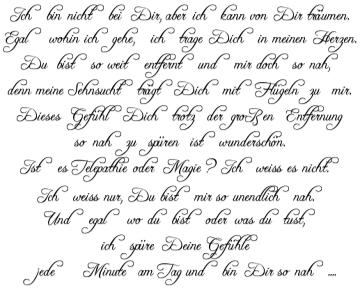 Ich bin nicht bei Dir, aber ich kann von Dir träumen.
Egal wohin ich gehe, ich trage Dich in meinen Herzen.
Du bist so weit entfernt und mir doch so nah,
denn meine Sehnsucht trägt Dich mit Flügeln zu mir.
Dieses Gefühl Dich trotz der großen Entfernung
so nah zu spüren ist wunderschön.
Ist es Telepathie oder Magie? Ich weiss es nicht.
Ich weiss nur, Du bist mir so unendlich nah.
Und egal wo du bist oder was du tust,
ich spüre Deine Gefühle
jede Minute am Tag und bin Dir so nah ....